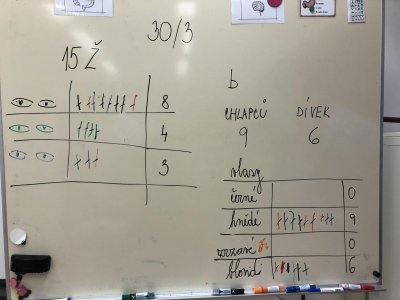 30/3
15 Ž
8
4
3
b
CHLAPCŮ DÍVEK
9 6
vlasy
černé 0
hnědé 9
zrzavé 0
blond 6